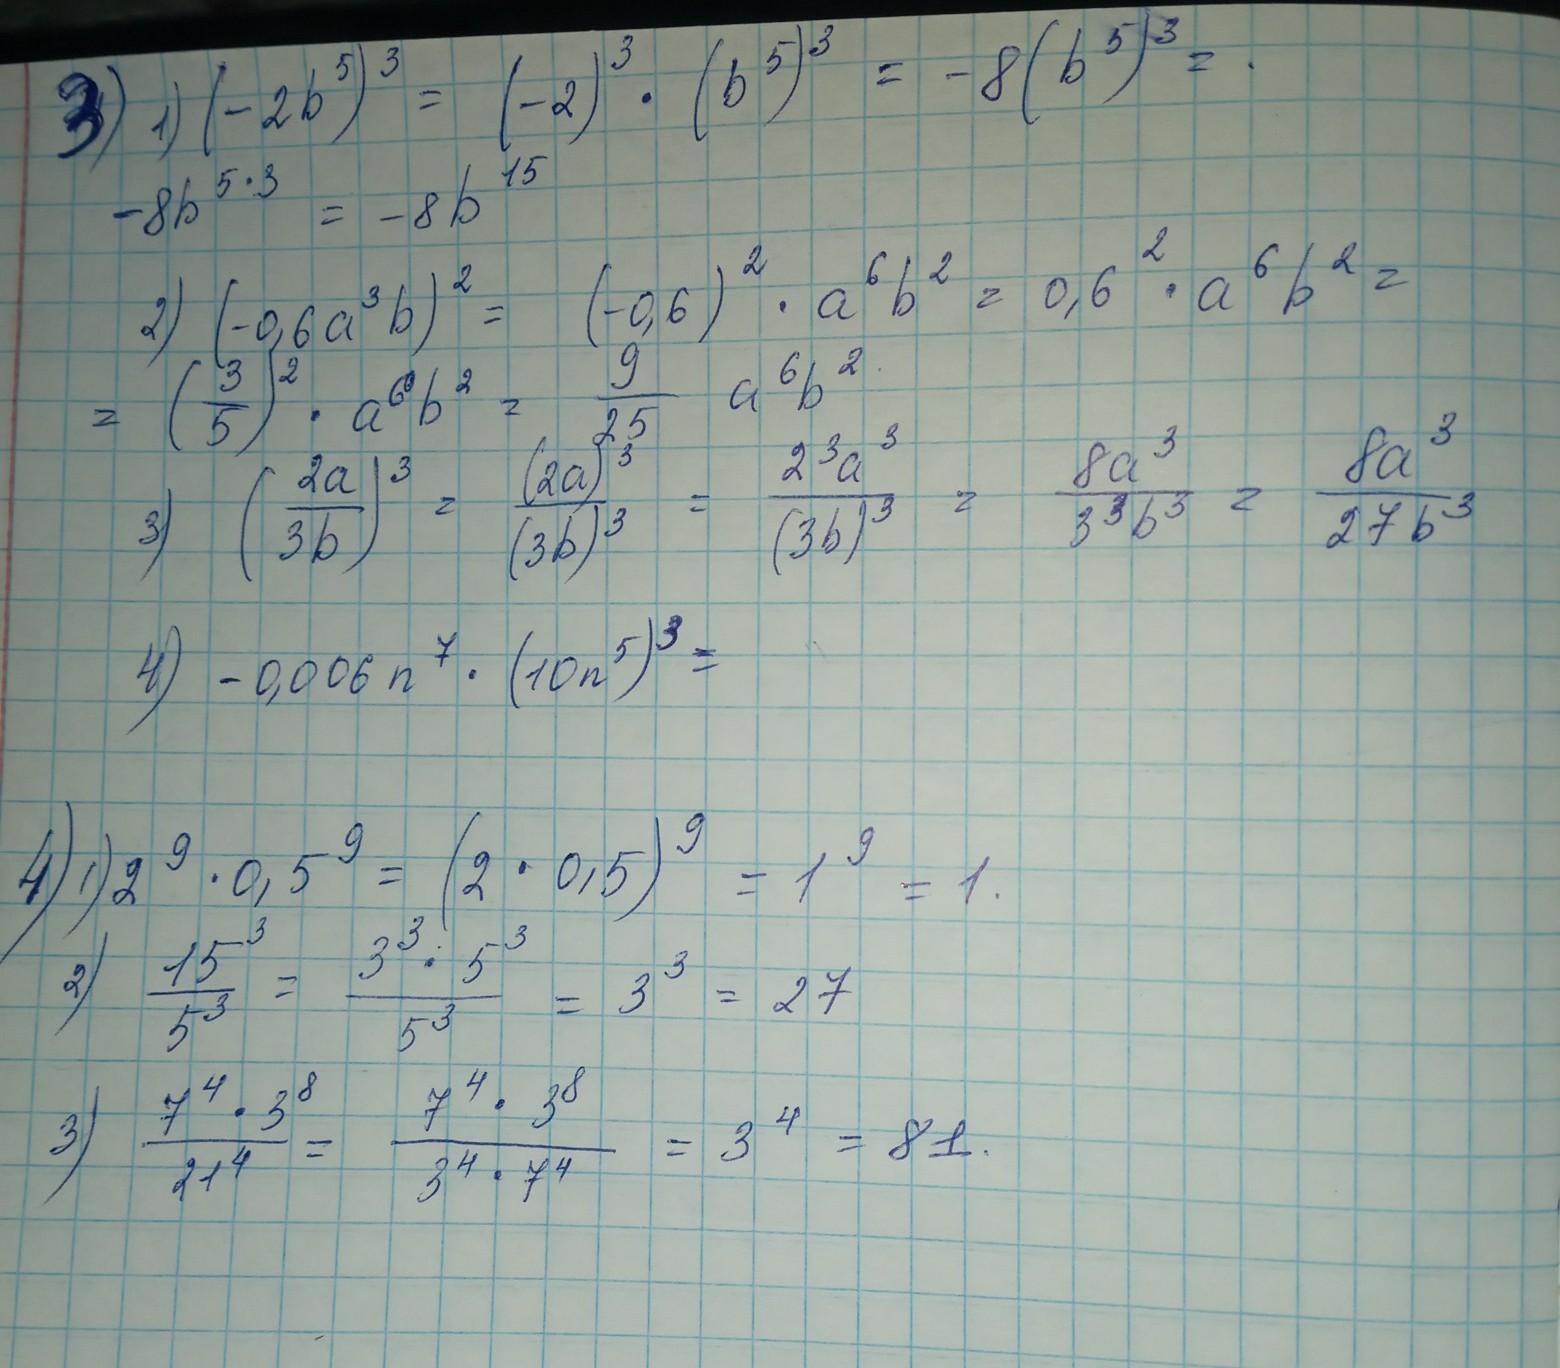 3) 1) (-2b⁵)³ = (-2)³ · (b⁵)³ = -8(b⁵)³ =
-8b⁵·³ = -8b¹⁵
2) (-0,6a³b)² = (-0,6)² · a⁶b² = 0,6² · a⁶b² =
= (3/5)² · a⁶b² = 9/25 a⁶b²
3) (2a/3b)³ = (2a)³/(3b)³ = 2³a³/(3b)³ = 8a³/3³b³ = 8a³/27b³
4) -0,006n⁷ · (10n⁵)³ =
4) 1) 2⁹ · 0,5⁹ = (2 · 0,5)⁹ = 1⁹ = 1.
2) 15³/5³ = 3³ · 5³/5³ = 3³ = 27
3) 7⁴ · 3⁸/21⁴ = 7⁴ · 3⁸/3⁴ · 7⁴ = 3⁴ = 81.